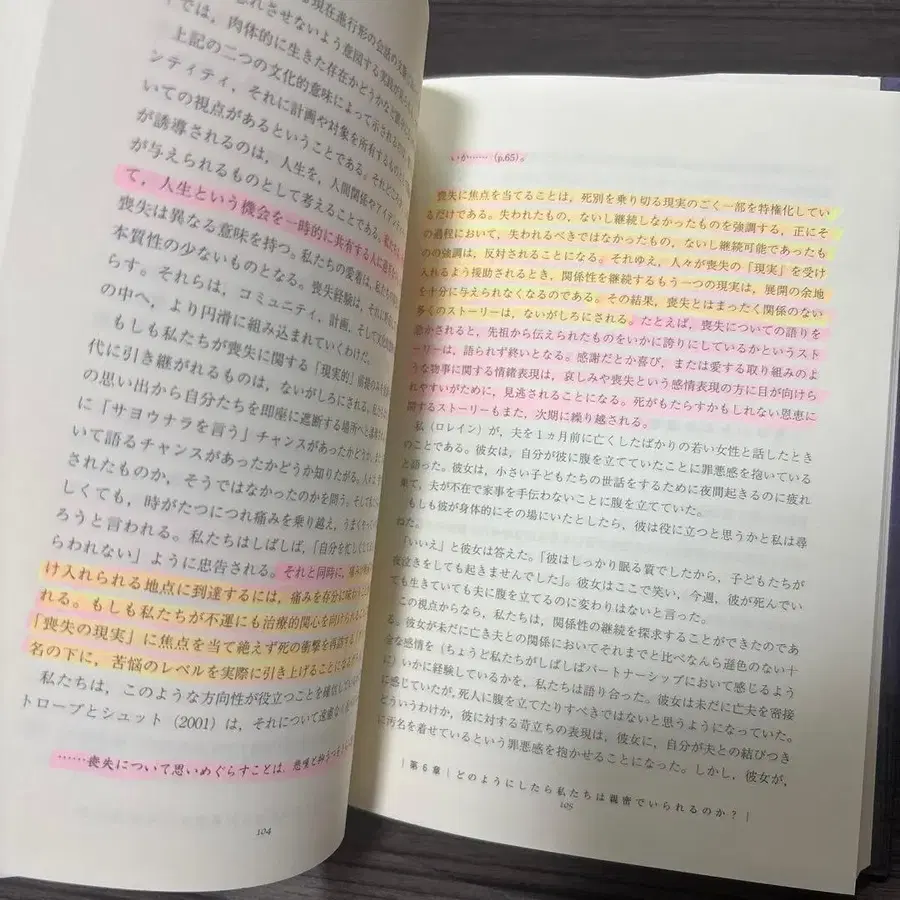 現在進行形の会話の
忘れさせないよう意図する実践が
では，肉体的に生きた存在かどうかなど
上記の二つの文化的意味によって示される
ンティティ，それに計画や対象を所有する
いての視点があるということである。それ
が誘導されるのは，人生を，人間関係やアイデン
が与えられるものとして考えることである。
て，人生という機会を一時的に共有する人に
喪失は異なる意味を持つ。私たちの愛着は，
本質性の少ないものとなる。喪失経験は，それ
らす。それらは，コミュニティ，計画，そして
の中へ，より円滑に組み込まれていくわけだ。
もしも私たちが喪失に関する「現実的」
代に引き継がれるものは，ないがしろにされる。
の思い出から自分たちを即座に遮断する場所へと
に「サヨウナラを言う」チャンスがあったかどうか，
いて語るチャンスがあったかどうか知りたがる。
されたものか，そうではなかったのかを問う。そして
しくても，時がたつにつれ痛みを乗り越え，うまく
ろうと言われる。私たちはしばしば，「自分を忙しくして
らわれない」ように忠告される。それと同時に，
け入れられる地点に到達するには，痛みを存分に味わ
れる。もしも私たちが不運にも治療的関心を向けられる
「喪失の現実」に焦点を当て絶えず死の衝撃を再話する
名の下に，苦悩のレベルを実際に引き上げることになる
私たちは，このような方向性が役立つことを確信して
トローブとシュット（2001）は，それについて
……喪失について思いめぐらすことは，悲嘆と
104
いか……（p.65）。
喪失に焦点を当てることは，死別を乗り切る現実のごく一部を特権化してい
るだけである。失われたもの，ないし継続しなかったものを強調する，正にそ
の過程において，失われるべきではなかったもの，ないし継続可能であったも
のの強調は，反対されることになる。それゆえ，人々が喪失の「現実」を受け
入れるよう援助されるとき，関係性を継続するもう一つの現実は，展開の余地
を十分に与えられなくなるのである。その結果，喪失とはまったく関係のない
多くのストーリーは，ないがしろにされる。たとえば，喪失についての語りを
急かされると，先祖から伝えられたものをいかに誇りにしているかというスト
ーリーは，語られず終いとなる。感謝だとか喜び，または愛する取り組みのよ
うな物事に関する情緒表現は，哀しみや喪失という感情表現の方に目が向けら
れやすいがために，見逃されることになる。死がもたらすかもしれない恩恵に
関するストーリーもまた，次期に繰り越される。
私（ロレイン）が，夫を1ヵ月前に亡くしたばかりの若い女性と話したとき
のことである。彼女は，自分が彼に腹を立てていたことに罪悪感を抱いている
と語った。彼女は，小さい子どもたちの世話をするために夜間起きるのに疲れ
果て，夫が不在で家事を手伝わないことに腹を立てていた。
もしも彼が身体的にその場にいたとしたら，彼は役に立つと思うかと私は尋
ねた。
「いいえ」と彼女は答えた。「彼はしっかり眠る質でしたから，子どもたちが
夜泣きをしても起きませんでした」。彼女はここで笑い，今週，彼が死んでい
ても生きていても夫に腹を立てるのに変わりはないと言った。
この視点からなら，私たちは，関係性の継続を探求することができたのであ
る。彼女が未だに亡き夫との関係においてそれまでと比べなんら遜色のない十
全な感情を（ちょうど私たちがしばしばパートナーシップにおいて感じるよう
に）いかに経験しているかを，私たちは語り合った。彼女は未だに亡夫を密接
に感じていたが，死人に腹を立てたりすべきではないと思うようになっていた。
どういうわけか，彼に対する苛立ちの表現は，彼女に，自分が夫との結びつき
に汚名を着せているという罪悪感を抱かせることになった。しかし，彼女が，
｜第6章｜どのようにしたら私たちは親密でいられるのか？｜
105